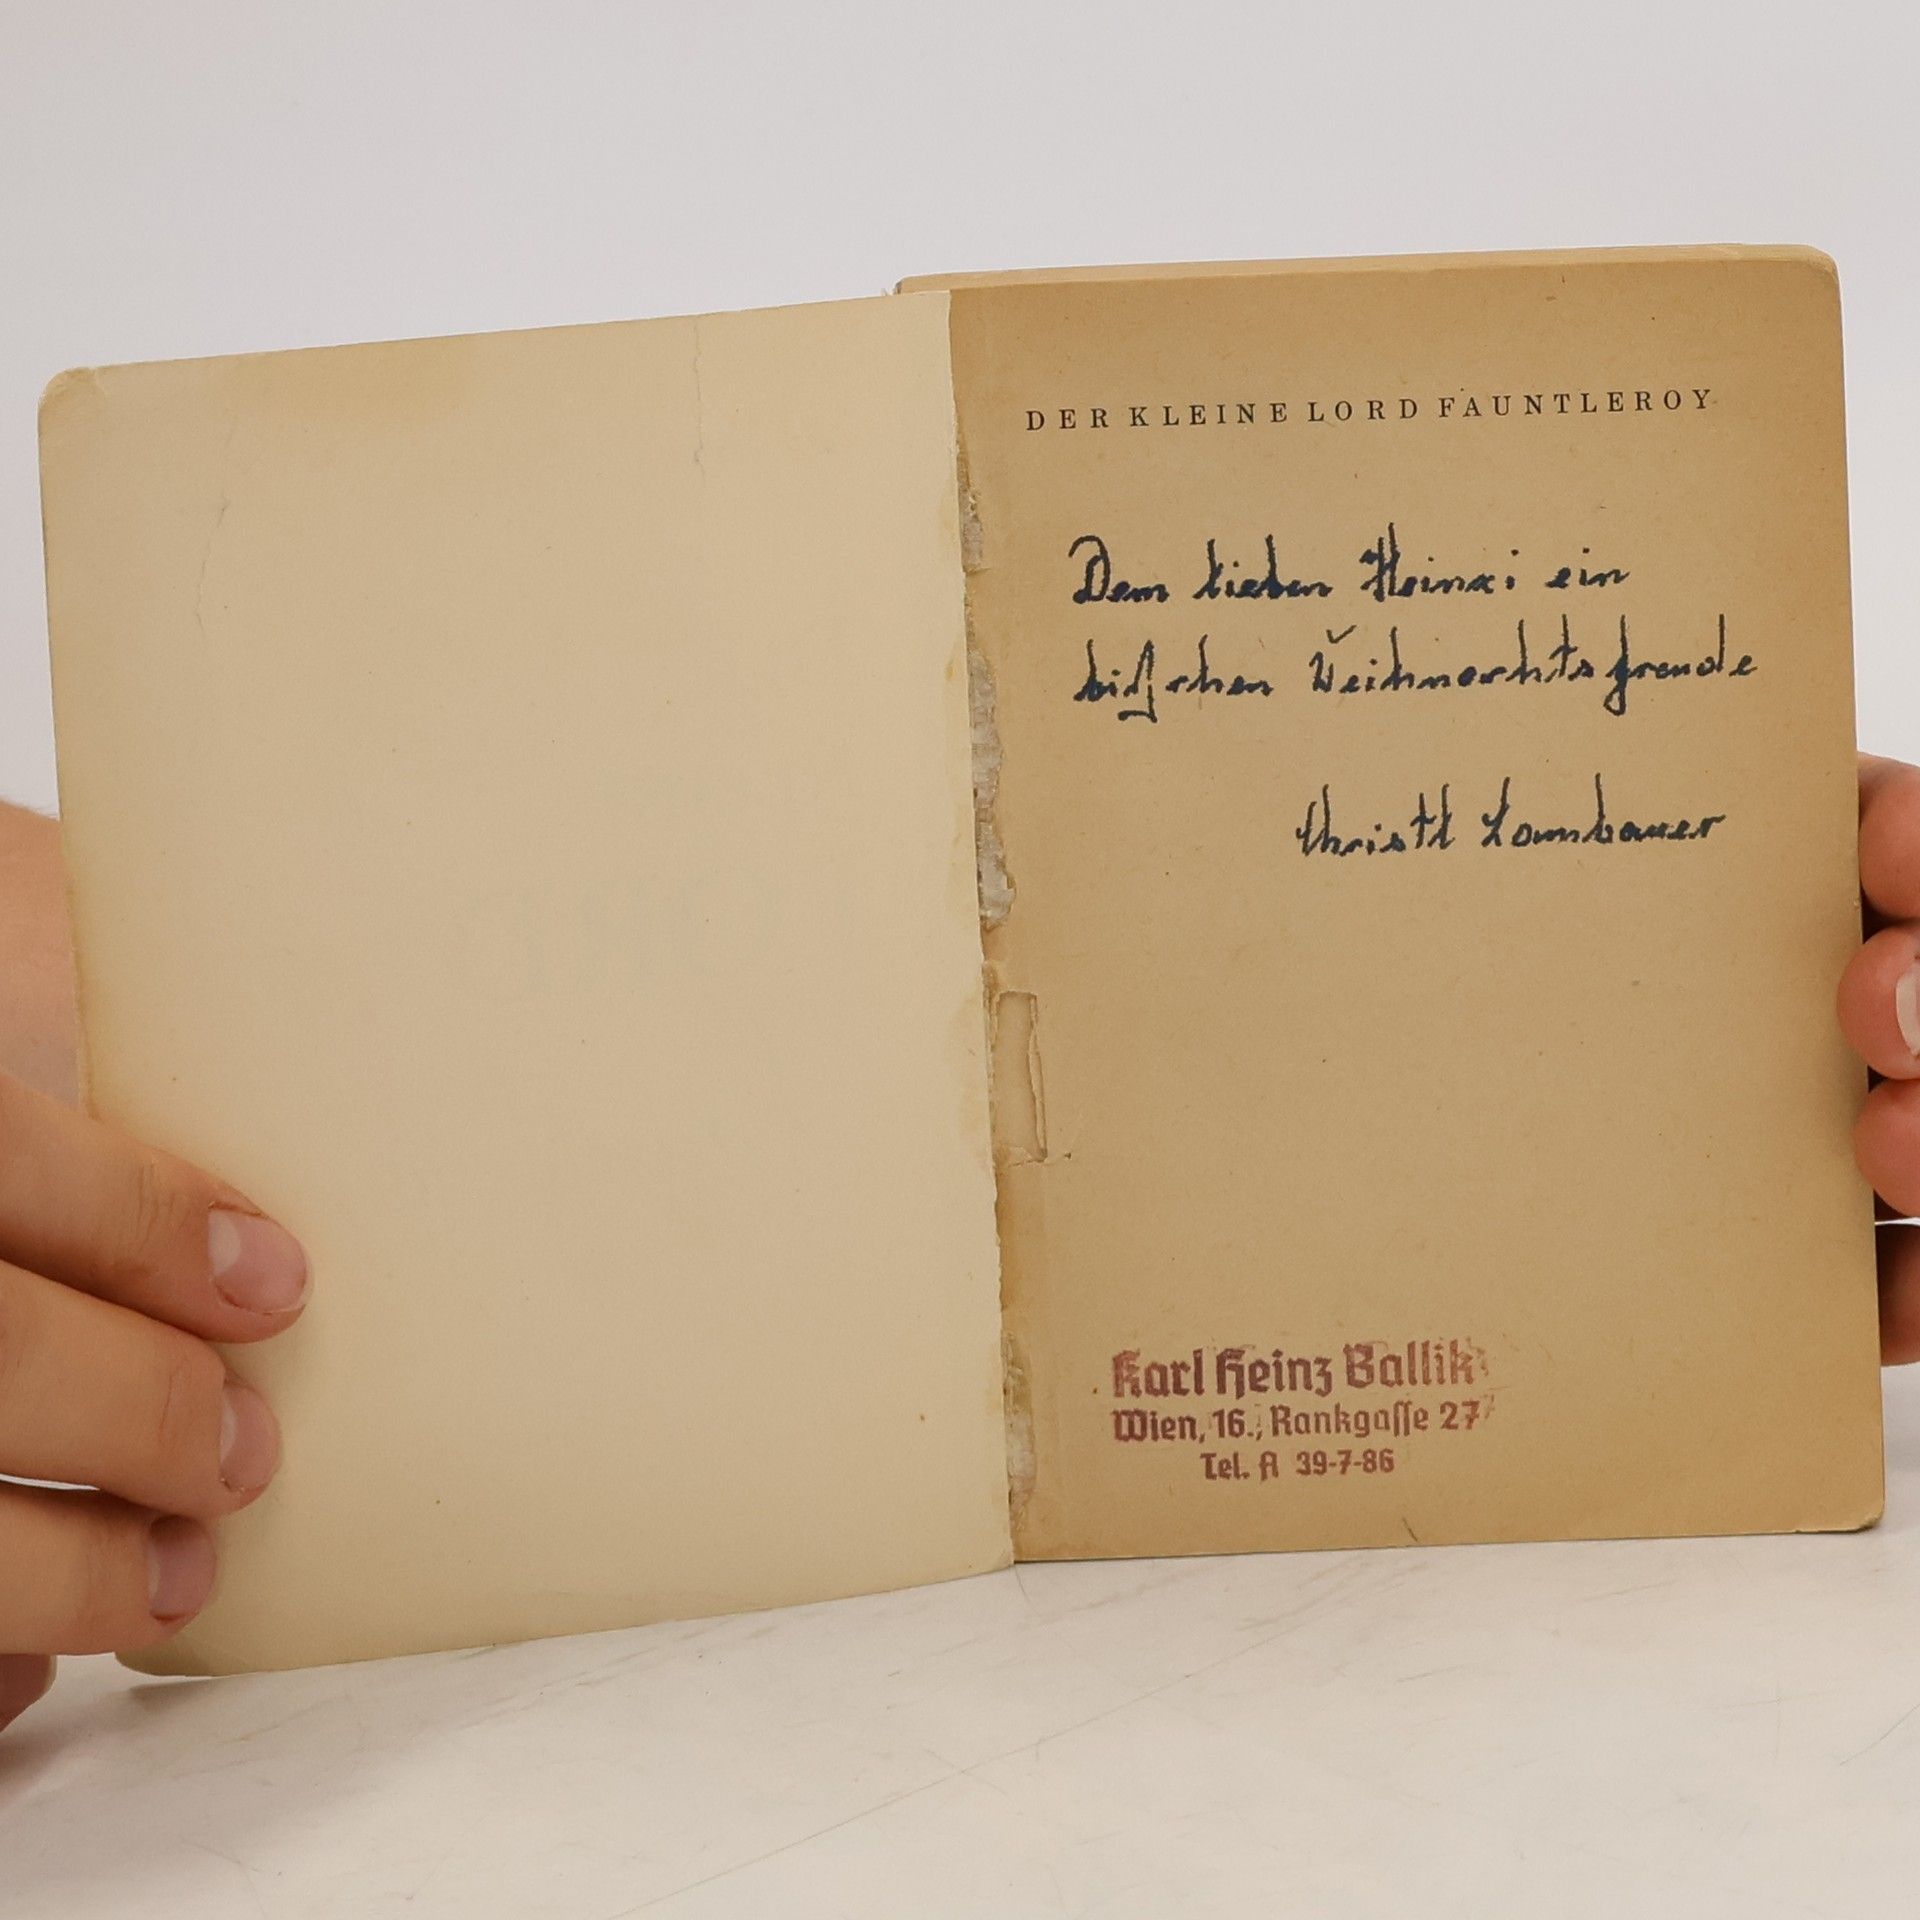 DER KLEINE LORD FAUNTLEROY
Dem lieben Heinzi ein
bißchen Weihnachtsfreude
Christl Lambauer
Karl Heinz Ballik
Wien, 16., Rankgasse 27
Tel. A 39-7-86